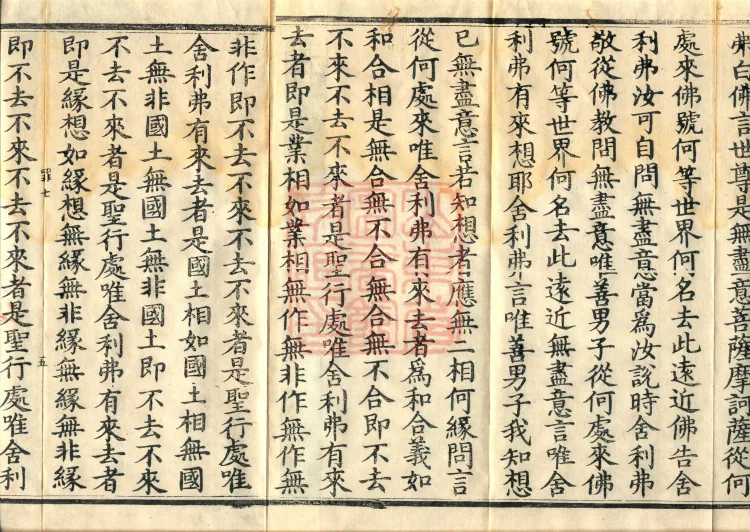 弗白佛言世尊是無盡意菩薩摩訶薩從何
處來佛號何等世界何名去此遠近佛告舍
利弗汝可自問無盡意當爲汝說時舍利弗
敬從佛教問無盡意唯善男子從何處來佛
號何等世界何名去此遠近無盡意言唯舍
利弗有來想耶舍利弗言唯善男子我知想
已無盡意言若知想者應無二相何緣問言
從何處來唯舍利弗有來去者爲和合義如
和合相是無合無不合無合無不合即不去
不來不去不來者是聖行處唯舍利弗有來
去者即是業相如業相無作無非作無作無
非作即不去不來不去不來者是聖行處唯
舍利弗有來去者是國土相如國土相無國
土無非國土無國土無非國土即不去不來
不去不來者是聖行處唯舍利弗有來去者
即是緣想如緣想無緣無非緣無緣無非緣
五
即不去不來不去不來者是聖行處唯舍利